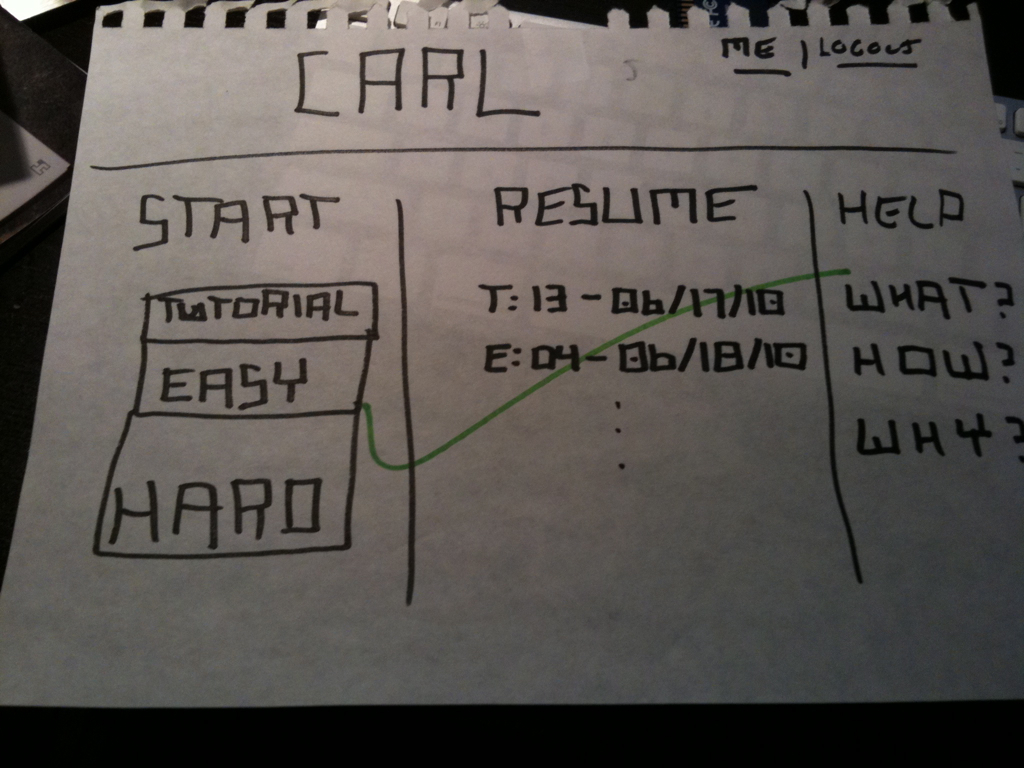 CARL
ME | LOGOUT
START
TUTORIAL
EASY
HARD
RESUME
T: 13 - 06/17/10
E: 04 - 06/18/10
HELP
WHAT?
HOW?
WHY?